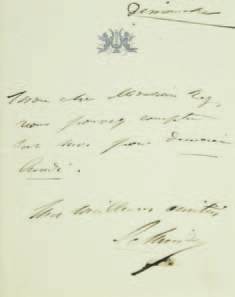 Dimanche
Mon cher Monsieur
vous pouvez compter
sur moi pour demain
lundi.
Mes meilleures amitiés